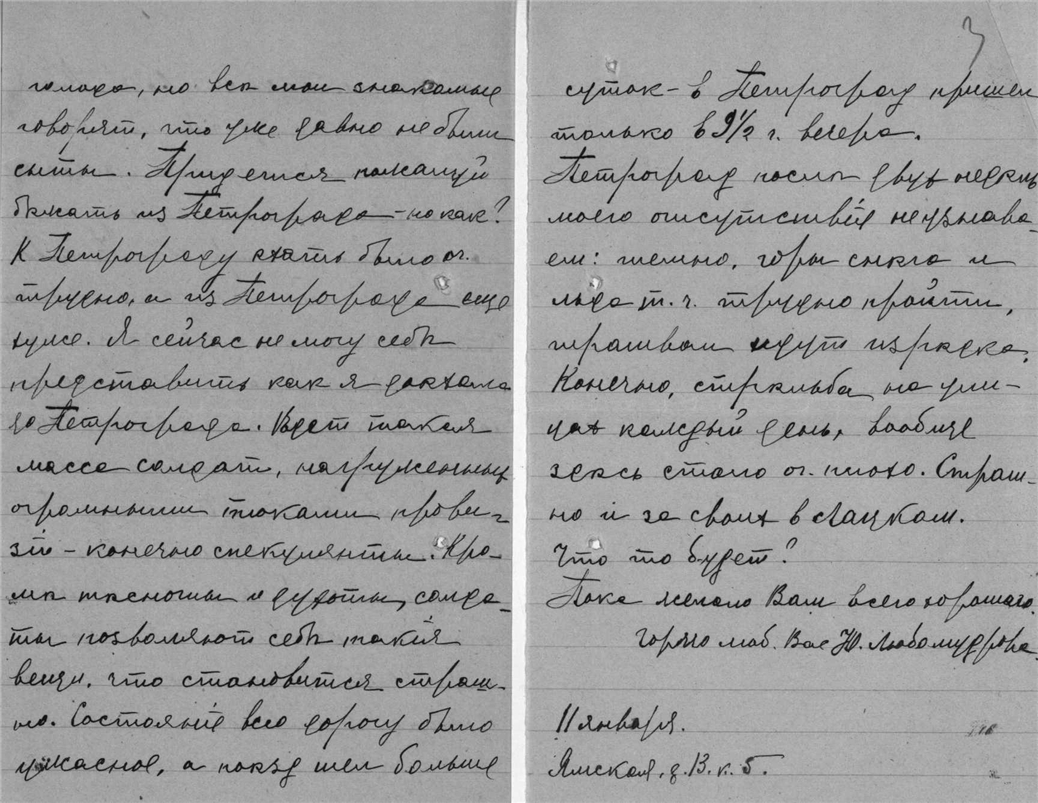 голода, но всѣ мои знакомые
говорятъ, что уже давно не были
сыты. Придется пожалуй
бѣжать из Петрограда – но как?
К Петрограду ѣхать было оч.
трудно, а из Петрограда еще
хуже. Я сейчас не могу себѣ
представить как я доѣхала
до Петрограда. Ѣдет такая
масса солдат, нагруженных
огромными тюками прови-
зіи – конечно спекулянты. Кро-
мѣ тѣсноты и духоты, солда-
ты позволяют себѣ такія
вещи, что становится страш-
но. Состояніе всю дорогу было
ужасное, а поѣзд шел больше
3
суток – в Петроград пришел
только в 9 1/2 ч. вечера.
Петроград послѣ двух недѣль
моего отсутствія неузнава-
ем: темно, горы снѣга и
льда т. ч. трудно пройти,
трамваи идут изрѣдка.
Конечно, стрѣльба на ули-
цах каждый день, вообще
здѣсь стало оч. плохо. Страш-
но и за своих в Лацком.
Что то будет?
Пока желаю Вам всего хорошаго.
Горячо люб. Вас Ю. Любомудрова.
11 января.
Ямская, д. 13. к. 5.